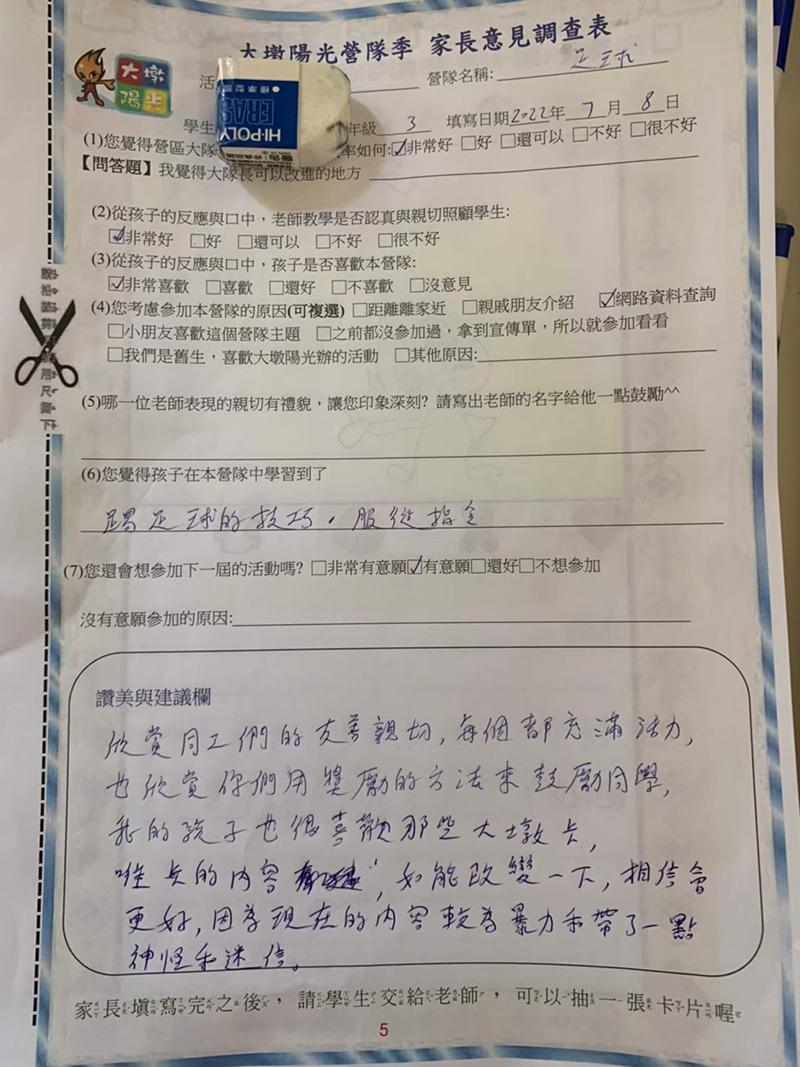 大墩陽光營隊季 家長意見調查表
大墩
陽光
活 營隊名稱: 足球
HI-POLY
學生 年級 3 填寫日期2022年 7 月 8 日
(1)您覺得營區大隊 率如何:☑非常好 □好 □還可以 □不好 □很不好
【問答題】我覺得大隊長可以改進的地方
(2)從孩子的反應與口中，老師教學是否認真與親切照顧學生:
☑非常好 □好 □還可以 □不好 □很不好
(3)從孩子的反應與口中，孩子是否喜歡本營隊:
☑非常喜歡 □喜歡 □還好 □不喜歡 □沒意見
(4)您考慮參加本營隊的原因(可複選) □距離離家近 □親戚朋友介紹 ☑網路資料查詢
□小朋友喜歡這個營隊主題 □之前都沒參加過，拿到宣傳單，所以就參加看看
□我們是舊生，喜歡大墩陽光辦的活動 □其他原因:
(5)哪一位老師表現的親切有禮貌，讓您印象深刻? 請寫出老師的名字給他一點鼓勵^^
(6)您覺得孩子在本營隊中學習到了
踢足球的技巧，服從指令
(7)您還會想參加下一屆的活動嗎? □非常有意願☑有意願□還好□不想參加
沒有意願參加的原因:
讚美與建議欄
欣賞同工們的友善親切，每個都充滿活力，
也欣賞你們用獎勵的方法來鼓勵同學，
我的孩子也很喜歡那些大墩卡，
唯卡的內容，如能改變一下，相信會
更好，因為現在的內容較為暴力和帶了一點
神怪和迷信。
家長填寫完之後，請學生交給老師，可以抽一張卡片喔
5